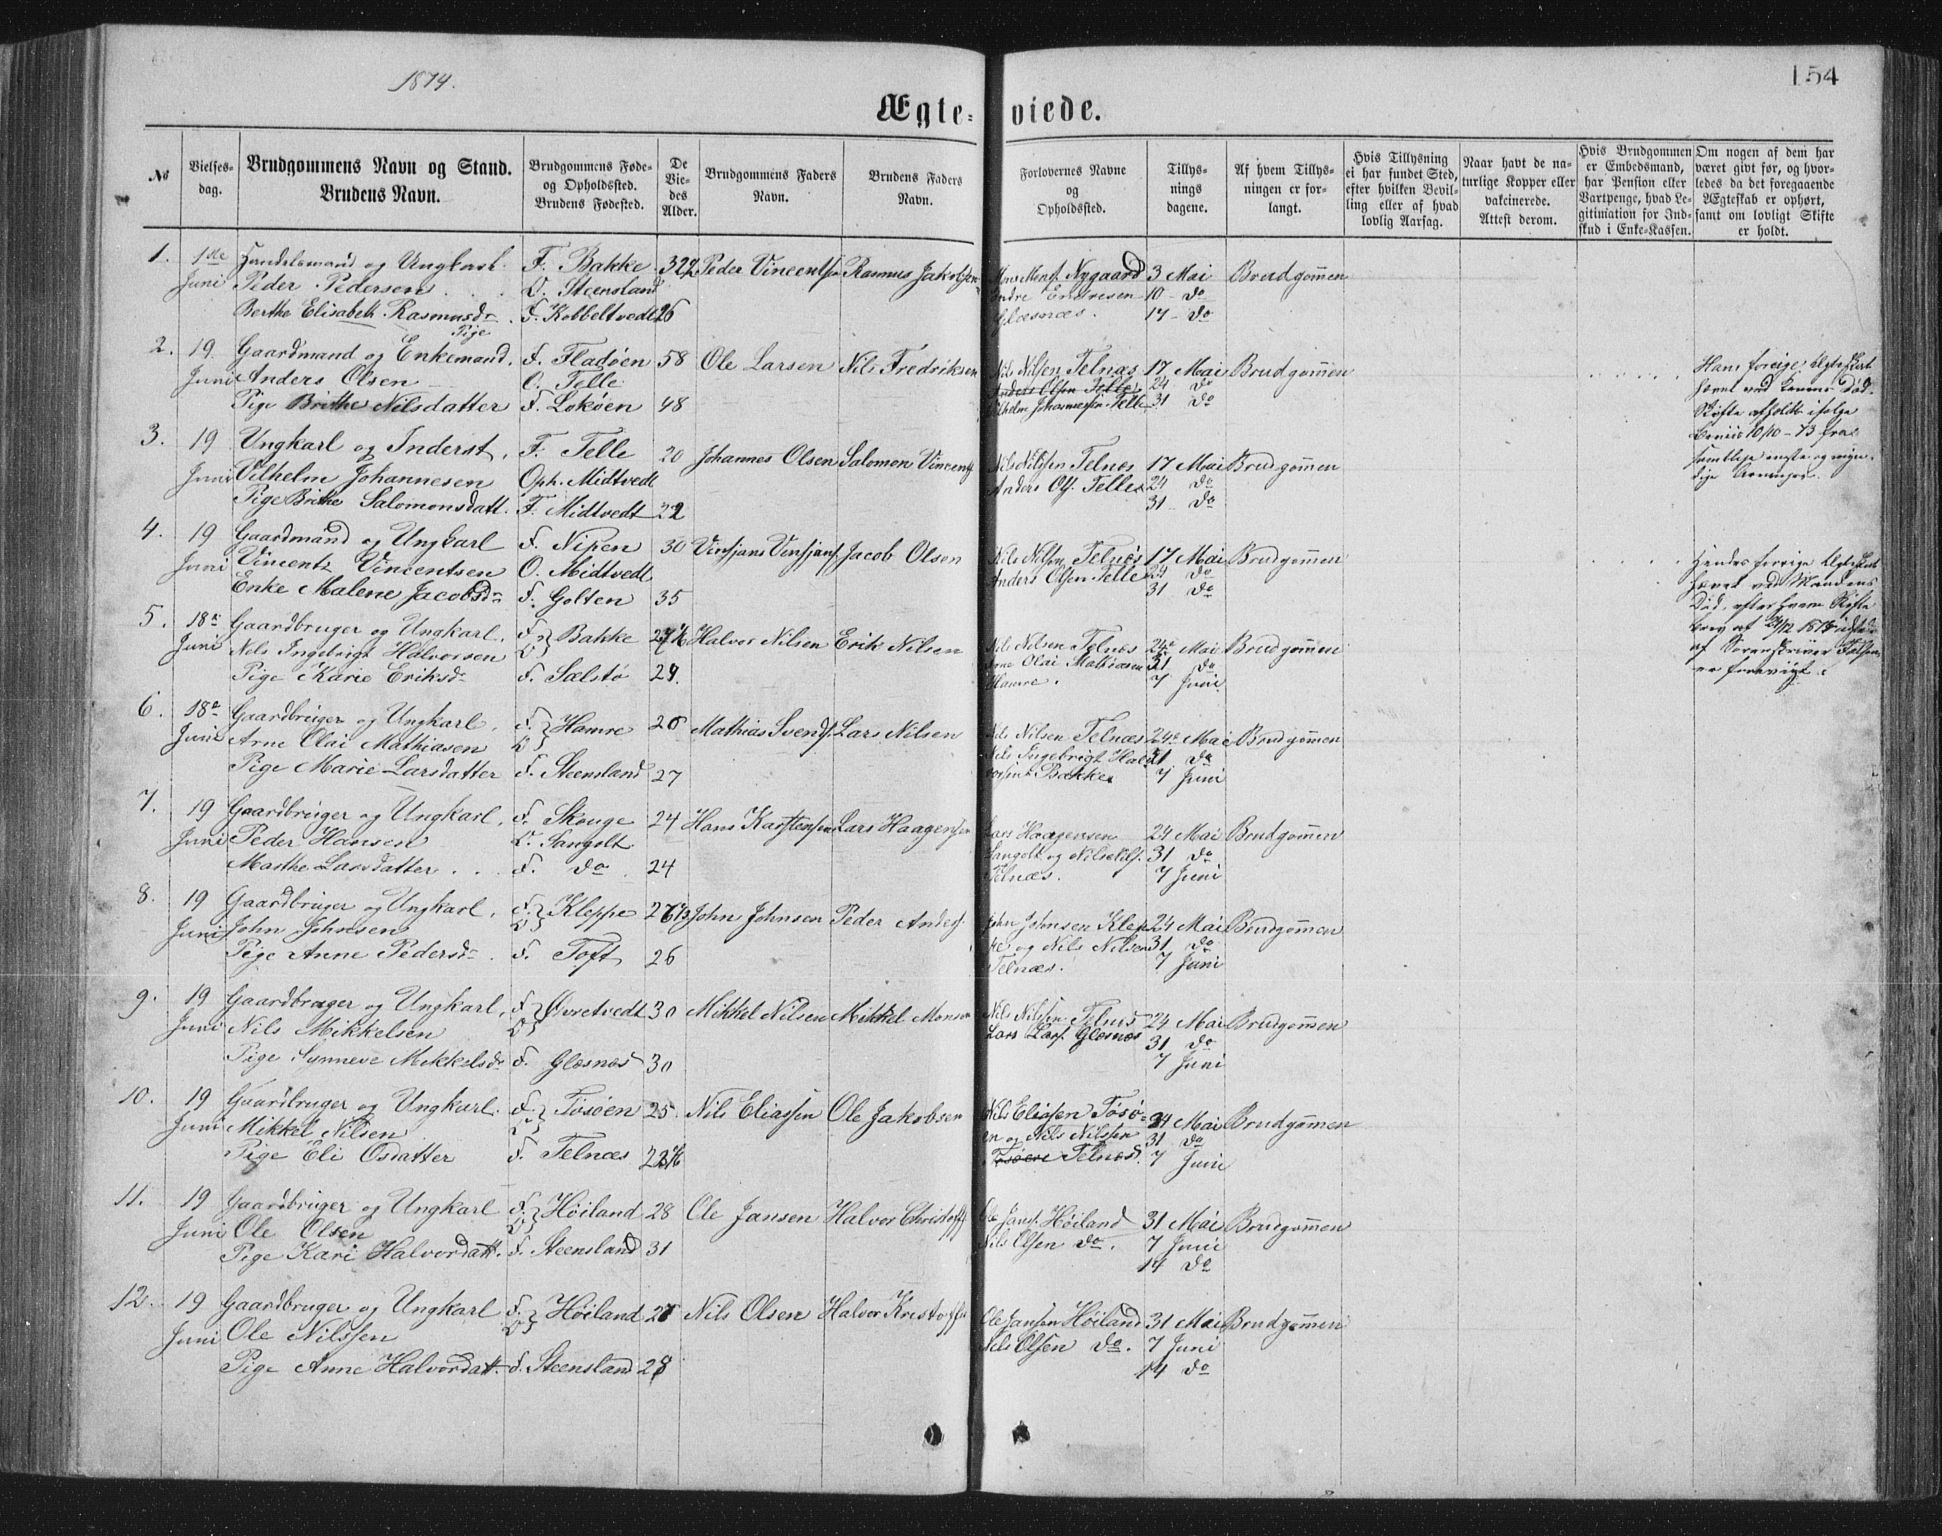 1874.
154
Ægte- viede.
No
Vielses-
dag.
Brudgommens Navn og Stand.
Brudens Navn.
Brudgommens Føde-
og Opholdssted.
Brudens Fødested.
De
Vie-
des
Alder.
Brudgommens Faders
Navn.
Brudens Faders
Navn.
Forlovernes Navne
og
Opholdssted.
Tillys-
nings
dagene.
Af hvem Tillys-
ningen er for-
langt.
Hvis Tillysning
ei har fundet Sted,
efter hvilken Bevil-
ling eller af hvad
lovlig Aarsag.
Naar havt de na-
turlige Kopper eller
vakcinerede.
Attest derom.
Hvis Brudgommen
er Embedsmand,
har Pension eller
Vartpenge, hvad Le-
gitimation for Ind-
skud i Enke-Kassen.
Om nogen af dem har
været givt før, og hvor-
ledes da det foregaaende
Ægteskab er ophørt,
samt om lovligt Skifte
er holdt.
1. 1ste Handelsmand og Ungkarl F. Bakke 32 Peder Vincents Rasmus Jakobsen Mons Monss. Nygaard 3 Mai Brudgommen
Juni Peder Pedersen O. Steensland Endre Endresen 10 - do
Berthe Elisabeth Rasmusdr F. Kobbeltvedt 26 Glæsnæs. 17 - do
Pige
2. 19 Gaardmand og Enkemand. F. Fladøen 58 Ole Larsen Nils Fredriksen Nils Nilsen Telnæs 17 Mai Brudgommen
Juni Anders Olsen O. Telle Anders Olsen Telle 24 do
Pige Brithe Nilsdatter F. Lokøen 48 Vilhelm Johannessen Telle 31 do
Hans forrige Ægteskab
hævet ved Konens Død.
Skifte afholdt ifølge
Beviis 10/10 - 73 fra
samtlige
3. 19 Ungkarl og Inderst, F. Telle 20 Johannes Olsen Salomon Vincents Nils Nilssen Telnæs 17 Mai Brudgommen
Juni Vilhelm Johannesen Oph. Midtvedt Anders Ols. Telle 24 do
Pige Brithe Salomonsdatt. F. Midtvedt 22 31 do
4. 19 Gaardmand og Ungkarl F. Nipen 30 Vinsjans Vinsjans. Jacob Olsen Nils Nilsen Telnæs 17 Mai Brudgommen
Juni Vincentz Vincentsen O. Midtvedt Anders Olsen Telle 24 do
Enke Malene Jacobsdr F. Golten 35 31 do
Hendes forrige Ægteskab
hævet ved Mandens
Død, efter hvem Skifte
brev af
af Sorenskriver
er forevist.
5. 18e Gaardbruger og Ungkarl. F. O. Bakke Halvor Nilsen Erik Nilsen Nils Nilsen Telnæs 24e Mai Brudgommen
Juni Nils Ingebrigt Halvorsen Arne Olai Mathiasen 31 do
Pige Karie Eriksdr F. Sælstø 29. Hamre. 7 Juni
6. 18e Gaardbruger og Ungkarl, F. O. Hamre 26 Mathias Svends. Lars Nilsen Nils Nilsen Telnæs 24e Mai Brudgommen
Juni Arne Olai Mathiasen Nils Ingebrigt Hal- 31 do
Pige Marie Larsdatter F. Steensland 27 vorsen Bakke. 7 Juni
7. 19 Gaardbruger og Ungkarl, F. Skouge 24 Hans Karstensen Lars Haagensen Lars Haagensen 24 Mai Brudgommen
Juni Peder Hansen O. Sangolt Sangolt og Nils Nils. 31 do
Marthe Larsdatter . . . F. do 24 Telnæs. 7 Juni
8. 19 Gaardbruger og Ungkarl, F. O. Kleppe John Johnsen Peder Anders. John Johnsen Klep- 24 Mai Brudgommen
Juni John Johnsen pe og Nils Nilsen 31 do
Pige Anne Pedersdr F. Toft 26 Telnæs. 7 Juni
9. 19 Gaardbruger og Ungkarl, F. O. Øvretvedt 30 Mikkel Nilsen Mikkel Monsen Nils Nilssen Telnæs 24 Mai Brudgommen
Juni Nils Mikkelsen Lars Lars. Glæsnæs 31 do
Pige Synneve Mikkelsdr F. Glæsnæs 30 7 Juni
10. 19 Gaardbruger og Ungkarl. F. O. Tøsøen 25 Nils Eliassen Ole Jakobsen Nils Eliassen Tøsø- 24 Mai Brudgommen
Juni Mikkel Nilsen en og Nils Nilssen 31 do
Pige Eli Osdatter F. Telnæs Telnæs. 7 Juni
11. 19 Gaardbruger og Ungkarl F. O. Høiland 28 Ole Jansen Halvor Christoffs Ole Jans. Høiland 31 Mai Brudgommen
Juni Ole Olsen Nils Olsen do. 7 Juni
Pige Kari Halvordatt. F. Steensland 31 14 do
12. 19 Gaardbruger og Ungkarl F. O. Høiland Nils Olsen Halvor Kristoffs Ole Jansen Høiland 31 Mai Brudgommen
Juni Ole Nilssen Nils Olsen do. 7 Juni
Pige Anne Halvordatt. F. Steensland 28 14 do